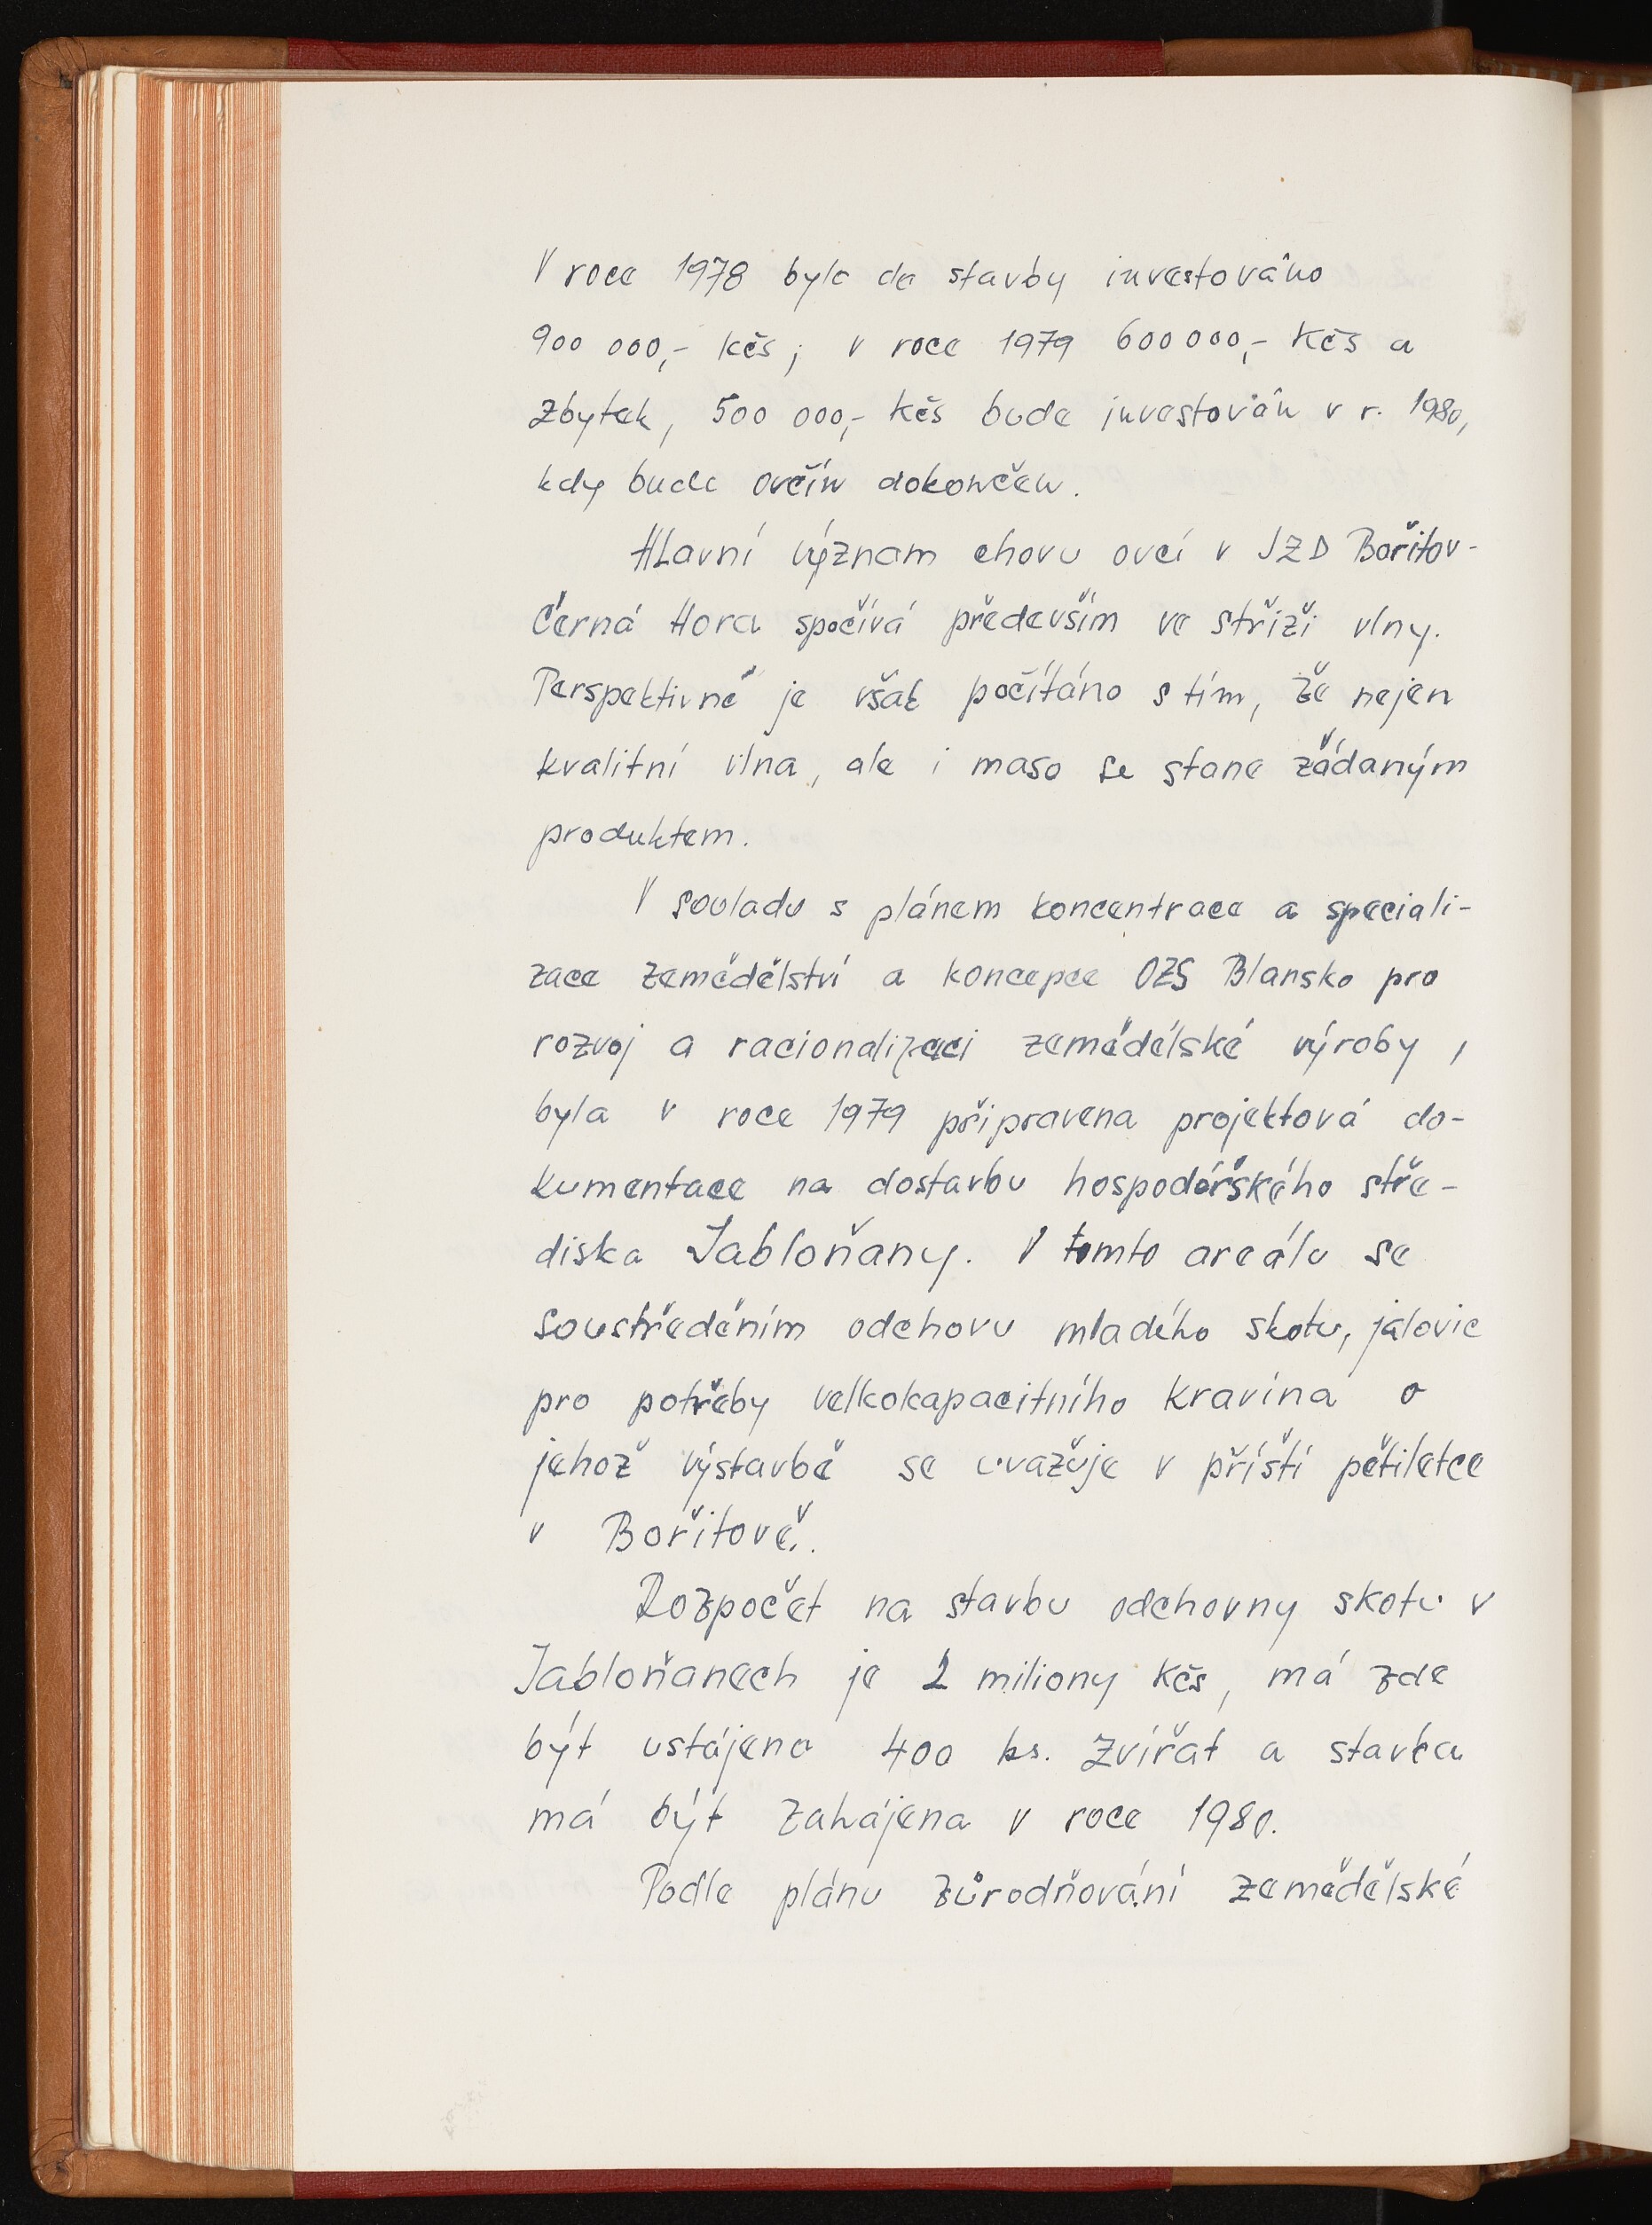 V roce 1978 bylo do stavby investováno
900 000,- Kčs; v roce 1979 600 000,- Kčs a
zbytek, 500 000,- Kčs bude investován v r. 1980,
kdy bude ovčín dokončen.
Hlavní význam chovu ovcí v JZD Bořitov-
Černá Hora spočívá především ve střiži vlny.
Perspektivně je však počítáno s tím, že nejen
kvalitní vlna, ale i maso se stane žádaným
produktem.
V souladu s plánem koncentrace a speciali-
zace zemědělství a koncepce OZS Blansko pro
rozvoj a racionalizaci zemědělské výroby,
byla v roce 1979 připravena projektová do-
kumentace na dostavbu hospodářského stře-
diska Jabloňany. V tomto areálu se
soustředěním odchovu mladého skotu, jalovic
pro potřeby velkokapacitního kravína o
jehož výstavbě se uvažuje v příští pětiletce
v Bořitově.
Rozpočet na stavbu odchovny skotu v
Jabloňanech je 2 miliony Kčs, má zde
být ustájeno 400 ks. zvířat a stavba
má být zahájena v roce 1980.
Podle plánu zúrodňování zemědělské